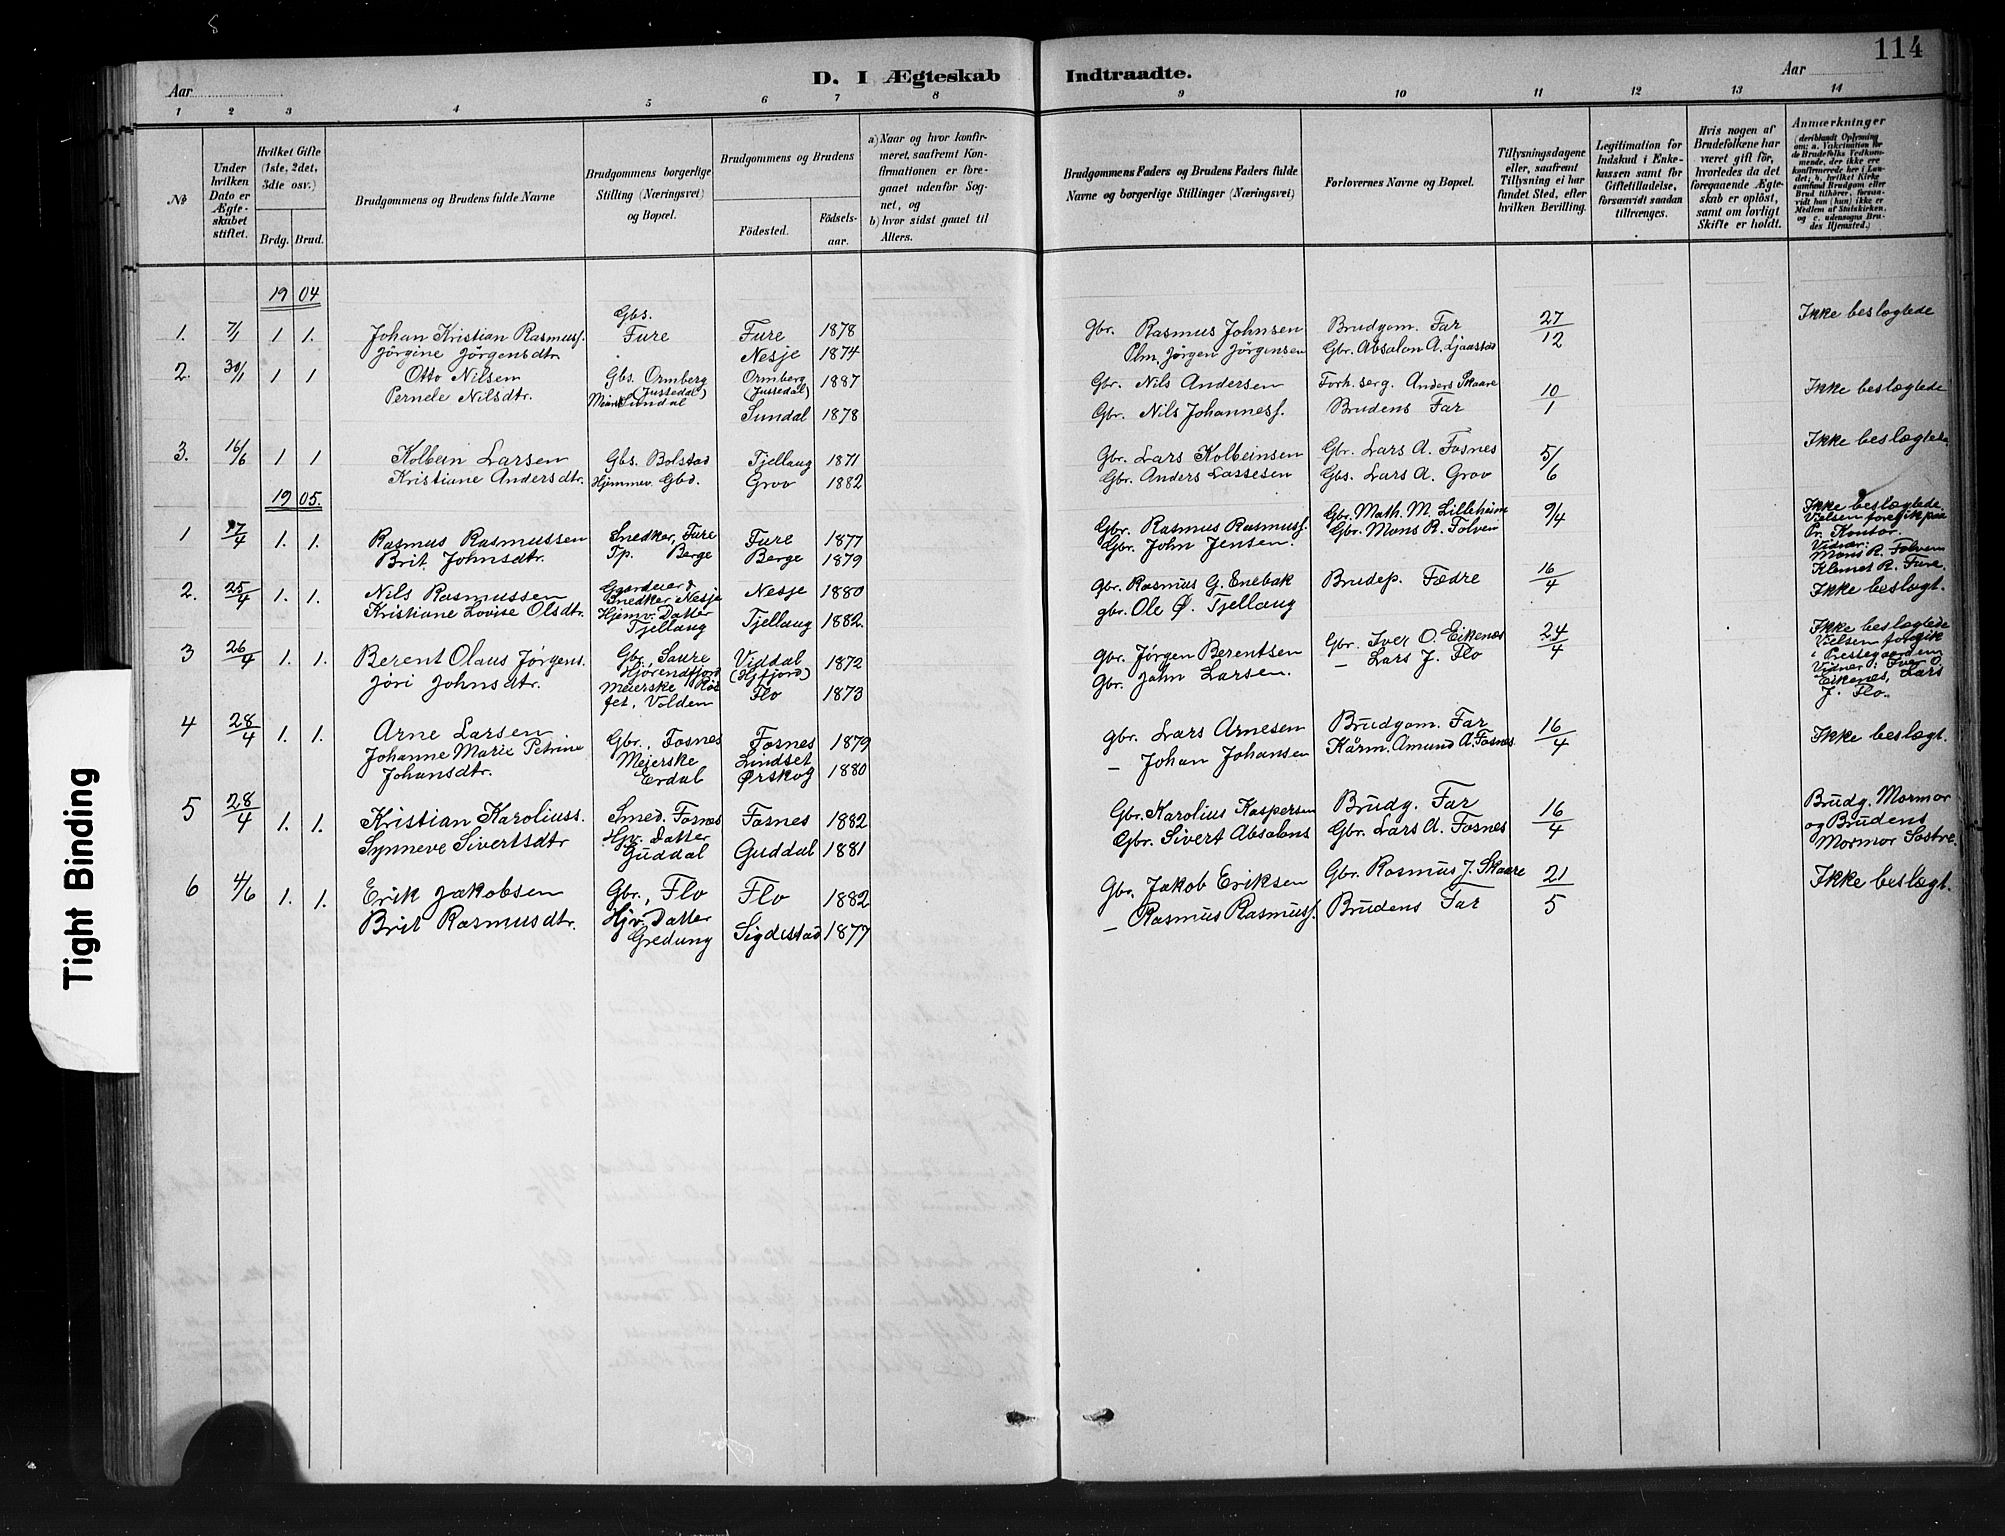 114
D. I Ægteskab Indtraadte.
Aar Aar
1 2 3 4 5 6 7 8 9 10 11 12 13 14
№
Under hvilken Dato er Ægteskabet stiftet.
Hvilket Gifte (1ste, 2det, 3die osv.)
Brdg. Brud.
Brudgommens og Brudens fulde Navne
Brudgommens borgerlige Stilling (Næringsvei) og Bopæl.
Brudgommens og Brudens
Födested. Födselsaar.
a) Naar og hvor konfirmeret, saafremt Konfirmationen er foregaaet udenför Sognet, og
b) hvor sidst gaaet til Alters.
Brudgommens Faders og Brudens Faders fulde Navne og borgerlige Stillinger (Næringsvei)
Forlovernes Navne og Bopæl.
Tillysningsdagene eller, saafremt Tillysning ei har fundet Sted, efter hvilken Bevilling.
Legitimation for Indskud i Enkekassen samt for Giftetilladelse, forsaavidt saadan tiltrænges.
Hvis nogen af Brudefolkene har været gift för, hvorledes da det foregaaende Ægteskab er oplöst, samt om lovligt Skifte er holdt.
Anmærkninger
(deriblandt Oplysning om: a. Vakcination for de Brudefolks Vedkommende, der ikke ere konfirmerede her i Landet; b. hvilket Kirkesamfund Brudgom eller Brud tilhörer, forsaavidt han (hun) ikke er Medlem af Statskirken, og c. udensogns Brudes Hjemsted.)
1904
1. 7/1 1 1. Johan Kristian Rasmusf. Gbs. Fure Fure 1878 Gbr. Rasmus Johnsen Brudgom. Far 27/12 Ikke beslægtede
Jörgine Jörgensdtr. Nesje 1874 Plm. Jörgen Jörgensen Gbr. Absalon A. Ljaastad
2. 30/1 1 1 Otto Nilsen Gbs. Ormberg (Jussedal) Ormberg (Jussedal) 1887 Gbr. Nils Andersen Forh. serg. Anders Skaare 10/1 Ikke beslægtede
Pernele Nilsdtr. Sundal Sundal 1878 Gbr. Nils Johannesf. Brudens Far
3. 16/6 1 1 Kolbein Larsen Gbs. Bolstad Tjellaug 1871 Gbr. Lars Kolbeinsen Gbr. Lars A. Fosnes 5/6 Ikke beslægtede
Kristiane Andersdtr. Hjemmev. Gbd. Grov 1882 Gbr. Anders Lassesen Gbs. Lars A. Grov
1905.
1 17/4 1. 1. Rasmus Rasmussen Snedker, Fure Fure 1877 Gbr. Rasmus Rasmusf. Gbr. Math. M. Lilleheim 9/4 Ikke beslægtede. Vielsen foregik paa Pr. Kontor. Vidner: Mons R. Folven Klemet R. Fure.
Brit. Johnsdtr. Tp. Berge Berge 1879 Gbr. John Jensen. Gbr. Mons R. Folven
2. 25/4 1. 1. Nils Rasmussen Gaardeier & Snedker Nesje Nesje 1880 Gbr. Rasmus G. Enebak Brudep. Fædre 16/4 Ikke beslægt.
Kristiane Lovise Olsdtr. Hjemv. Datter Tjellaug Tjellaug 1882. gbr. Ole Ø. Tjellaug
3 26/4 1. 1. Berent Olaus Jörgens. Gbr, Saure Hjörendfjord Viddal (Hjfjord) 1872 Gbr. Jörgen Berentsen Gbr. Iver O. Eikenes 24/4 Ikke beslægtede Vielsen foregik i Prestegaarden Vidner: Iver O. Eikenes, Lars J. Flo.
Jöri Johnsdtr. Meierske Röset, Volden Flo 1873 Gbr. John Larsen. — Lars J. Flo
4 28/4 1. 1. Arne Larsen Gbr., Fosnes Fosnes 1879 gbr. Lars Arnesen Brudgom. Far 16/4 Ikke beslægt.
Johanne Marie Petrine Johansdtr. Meierske Erdal Lindset Ørskog 1880 — Johan Johansen Kårm. Amund A. Fosnes
5 28/4 1. 1. Kristian Karoliuss. Smed. Fosnes Fosnes 1882 Gbr. Karolius Kaspersen Brudg. Far 16/4 Brudg. Mormor og Brudens Mormor Söstre.
Synneve Sivertsdtr Hjv. Datter Guddal Guddal 1881 Gbr. Sivert Absalons Gbr. Lars A. Fosnes
6 4/6 1. 1. Erik Jakobsen Gbr., Flo Flo 1882 Gbr. Jakob Eriksen Gbr. Rasmus J. Skaare 21/5 Ikke beslægt.
Brit Rasmusdtr. Hjv. Datter Gredung Sigdestad 1877 — Rasmus Rasmusf. Brudens Far
Tight Binding